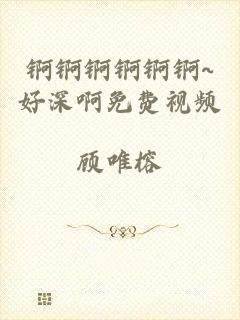 锕锕锕锕锕锕~
好深啊免费视频
顾唯榕